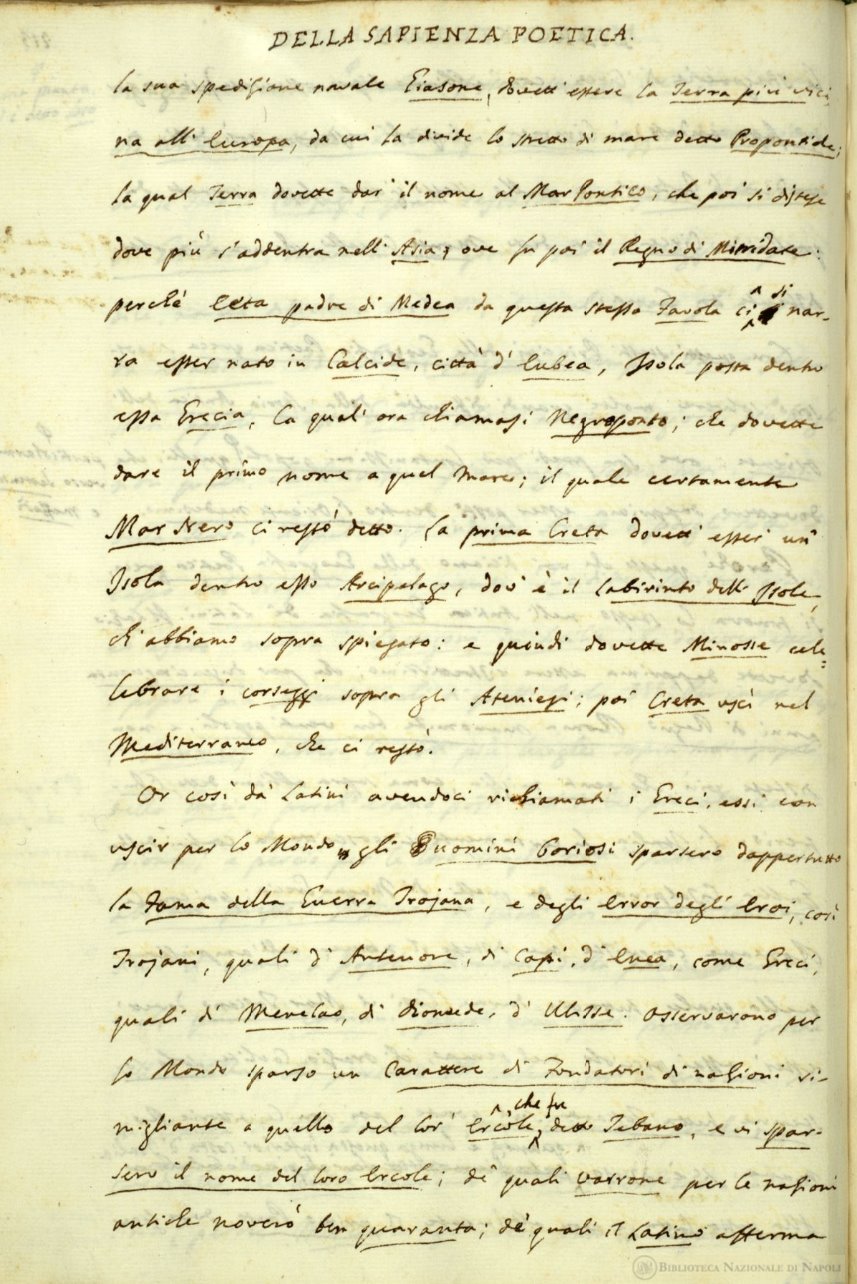 DELLA SAPIENZA POETICA.
la sua spedizione navale Giasone, dovett'essere la Terra più vici
na all'Europa, da cui la divide lo stretto di mare detto Propontide;
la qual Terra dovette dar' il nome al Mar Pontico, che poi si distese
dove più s'addentra nell'Asia, ove fu poi il Regno di Mitridate:
perchè Eeta padre di Medea da questa stessa Favola ci si nar-
ra esser nato in Calcide, città d'Eubea, Isola posta dentro
essa Grecia, la qual' ora chiamasi Negroponto; che dovette
dare il primo nome a quel Mare; il quale certamente
Mar Nero ci restò detto. La prima Creta dovett' esser' un'
Isola dentro esso Arcipelago, dov' è il Labirinto dell' Isole,
ch'abbiamo sopra spiegato: e quindi dovette Minosse cele=
lebrare i corseggi sopra gli Ateniesi; poi Creta uscì nel
Mediterraneo, che ci restò.
Or così da' Latini avendoci richiamati i Greci, essi con
uscir per lo Mondo gli Uomini Boriosi sparsero dappertutto
la Fama della Guerra Trojana, e degli error degli Eroi, così
Trojani, quali d'Antenore, di Capi, d'Enea, come Greci,
quali di Menelao, di Diomede, d'Ulisse. Osservarono per
lo Mondo sparso un Carattere di Fondatori di nazioni si-
migliante a quello del lor' Ercole, che fu detto Tebano, e vi spar-
sero il nome del loro Ercole; de' quali Varrone per le nazioni
antiche noverò ben quaranta; de' quali il Latino afferma
BIBLIOTECA NAZIONALE DI NAPOLI